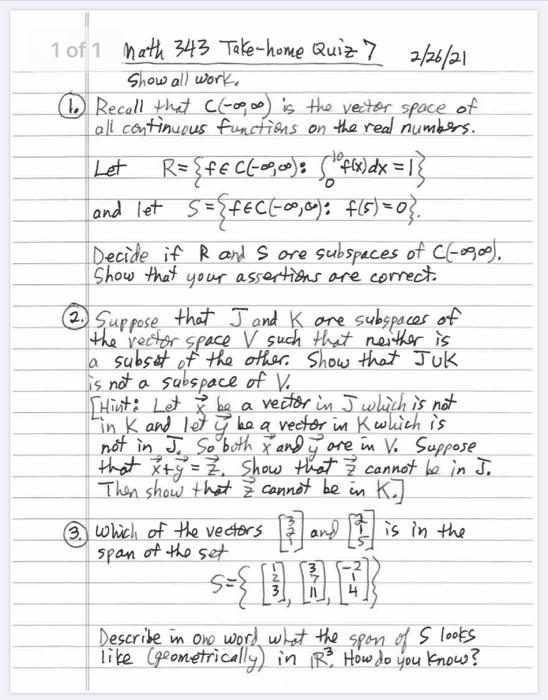 1 of 1 Math 343 Take-home Quiz 7 2/26/21
Show all work.
1. Recall that C(-∞,∞) is the vector space of
all continuous functions on the real numbers.
Let R={f∈C(-∞,∞): ∫₀¹⁰ f(x)dx = 1}
and let S={f∈C(-∞,∞): f(5)=0}.
Decide if R and S are subspaces of C(-∞,∞).
Show that your assertions are correct.
2. Suppose that J and K are subspaces of
the vector space V such that neither is
a subset of the other. Show that J∪K
is not a subspace of V.
[Hint: Let x⃗ be a vector in J which is not
in K and let y⃗ be a vector in K which is
not in J. So both x⃗ and y⃗ are in V. Suppose
that x⃗+y⃗=z⃗. Show that z⃗ cannot be in J.
Then show that z⃗ cannot be in K.]
3. Which of the vectors [3 2 1] and [2 1 5] is in the
span of the set
S={[1 2 3], [3 7 11], [-2 1 4]}
Describe in one word what the span of S looks
like (geometrically) in ℝ³. How do you know?